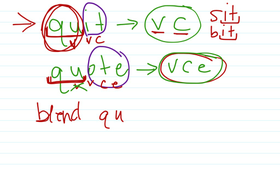 quit → vc sit
vc bit
quote → vce
vce
blend qu